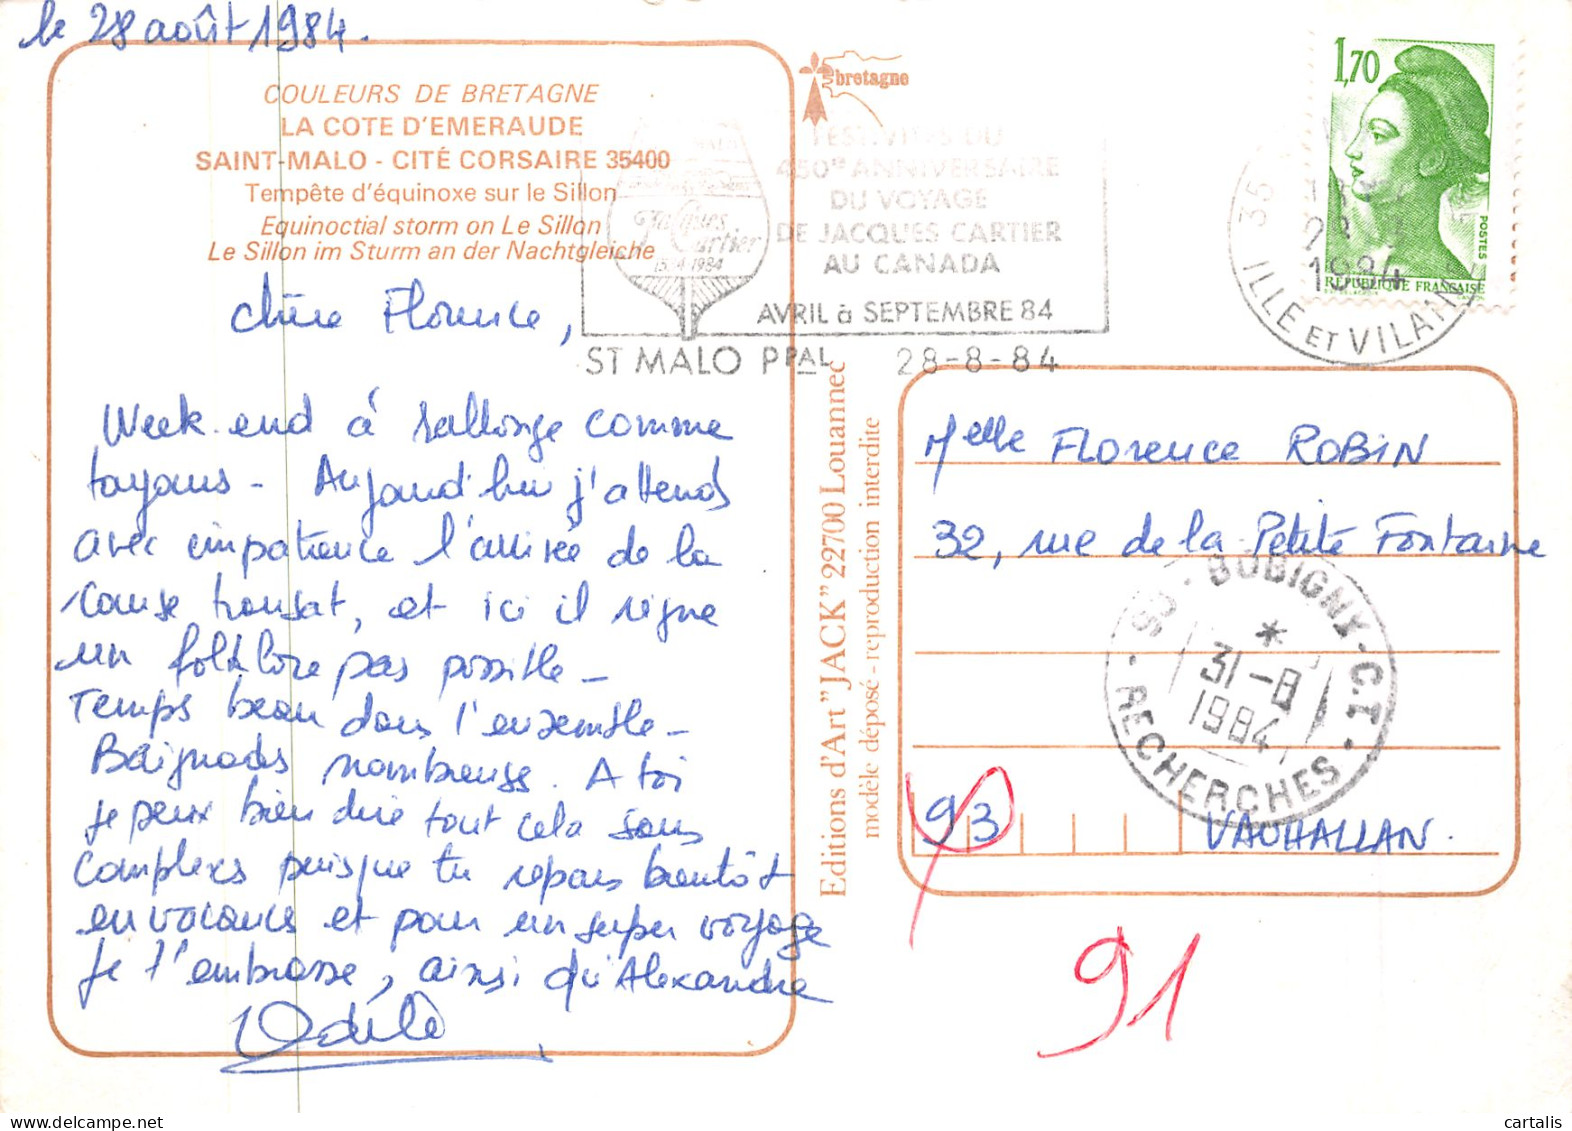 le 28 août 1984.
COULEURS DE BRETAGNE
LA COTE D'EMERAUDE
SAINT-MALO - CITÉ CORSAIRE 35400
Tempête d'équinoxe sur le Sillon
Equinoctial storm on Le Sillon
Le Sillon im Sturm an der Nachtgleiche
chère Florence,
Week-end à rallonge comme
toujours - Aujourd'hui j'attends
avec impatience l'arrivée de la
course transat, et ici il règne
un folklore pas possible -
Temps beau dans l'ensemble -
Baignades nombreuses. A toi
je peux bien dire tout cela sans
complexes puisque tu repars bientôt
en vacances et pour un super voyage
je t'embrasse, ainsi qu'Alexandre
Odile
bretagne
FESTIVITES DU
450e ANNIVERSAIRE
DU VOYAGE
DE JACQUES CARTIER
AU CANADA
AVRIL à SEPTEMBRE 84
Jacques
Cartier
1534-1984
ST MALO PPAL 28-8-84
35
1984
ILLE ET VILAINE
1,70
POSTES
REPUBLIQUE FRANÇAISE
Editions d'Art "JACK" 22700 Louannec
modèle déposé - reproduction interdite
Melle Florence ROBIN
32, rue de la Petite Fontaine
93 VAUHALLAN.
BOBIGNY - C.T.
*
31-8
1984
RECHERCHES
91
cartalis